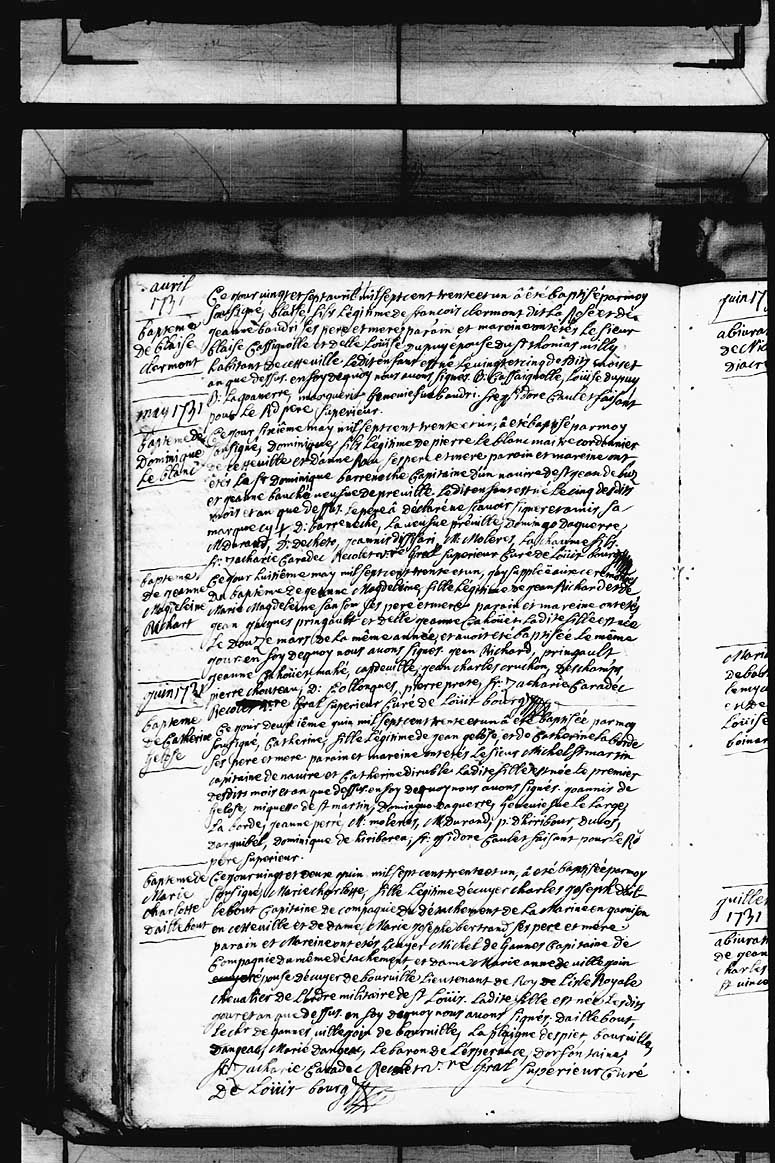 avril
1731
Ce jour vingt et sept avril mil sept cent trente et un â êté baptisé par moy
bapteme
de blaise
clermont
soussigné, blaise fils Légitime de francois clermont dit La Rose et de
jeanne baudri ses pere et mere, parain et mareine ont etés Le sieur
blaise Cassignolle et delle Loüise dupuy epouse du sr thomas milly
habitant de cette ville Ledit enfant est né Le vingt et cinq desdits mois et
an que dessus. en foy de quoy nous avons signés. B: Cassaignolle, Loüise dupuy
D: Lagoanerre, marguerit genevieve baudri. fr. isidore Caulet faisant
pour Le Rd pere superieur.
may 1731
bapteme de
Dominique
Le blanc
Ce jour sixiême may mil sept cent trente et un, â été baptisé par moy
soussigné, Dominique, fils Légitime de pierre Le blanc maitre cordonnier
de cette ville et d'anne ses pere et mere parain et mareine ont
étés Le sr Dominique barreneche Capitaine d'un navire de st jean de Luz
et jeanne bauché veufve de preville Ledit enfant est né Le cinq desdits
mois et an que dessus. Le pere â déclaré ne scavoir signer et a mis, sa
marque cy D: barreneche, La veufve préville, Domingo Daguerre,
M. Durand, D: decheto, joannis dissari, M: Moleres, La chaume fils
fr: Zacharie Caradec Recolet v.re Gral superieur Curé de Loüis bourg
baptême
de jeanne
Magdeleine
Richart
Ce jour huitiême may mil sept cent trente et un, j'ay suppleé aux ceremonies
du baptême de jeanne Magdeleine, fille Légitime de jean Richard et de
Marie Magdeleine samson ses pere et mere parain et mareine ont etés
jean jacques pringault et delle jeanne Cahouët Ladite fille est née
Le Douze mars de la même année, et avoit été baptisée Le même
jour. en foy de quoy nous avons signés. jean Richard, pringault
jeanne Cahouët mahé, capdeville, jean charles cruchon, Deschamps
pierre chouteau, D: Collongues, pierre prote, fr: Zacharie Caradec
Recolet v.re Gral superieur Curé de Loüis bourg
juin 1731
baptême
de Catherine
Gelose
Ce jour deuxiême juin mil sept cent trente et un â eté baptisée par moy
soussigné, Catherine, fille Légitime de jean gelose, et de Catherine La borde
ses pere et mere parain et mareine ont etés Le sieur Michel st martin
capitaine de navire et Catherine diruble Ladite fille est née Le premier
desdits mois et an que dessus en foy de quoy nous avons signés. joannis de
Gelose, miquelle de st martin, Domingue Daguerre, Genevieve Le Large,
La borde, jeanne perré, M: moleres, M. Durand, p. d'hiribour dulos,
Darquibel, dominique de hiriborea, fr: ysidore Caulet faisant pour Le Rd
pere superieur.
baptême de
Marie
charlotte
d'aillebout
Ce jour vingt et deux juin mil sept cent trente et un, â été baptisée par moy
soussigné, Marie charlotte, fille Légitime d'ecuyer charles joseph dail-
lebout Capitaine de compagnie du détachement de La Marine en garnison
en cette ville et de dame Marie josephe bertrand ses pere et mere
parain et Mareine ont etés Ecuyer Michel de Gannes Capitaine de
Compagnie du même détachement et dame Marie anne de villejoin
epouse d'ecuyer de bourville Lieutenant de Roy de L'isle Royale
chevalier de L'ordre militaire de st Loüis. Ladite fille est née Lesdits
jour et an que dessus. en foy de quoy nous avons signés. daillebout
Le chr de Gannes, villejoin de bourville, La plaigne despiet, bourville,
dangeac, Marie dangeac, Le baron de L'esperance, d'orfontaine,
fr: Zacharie Caradec Recolet v.re Gral superieur Curé
De Loüis bourg
juin 17
abjura
juillet
1731
abjurat
de jean
charles
st vince